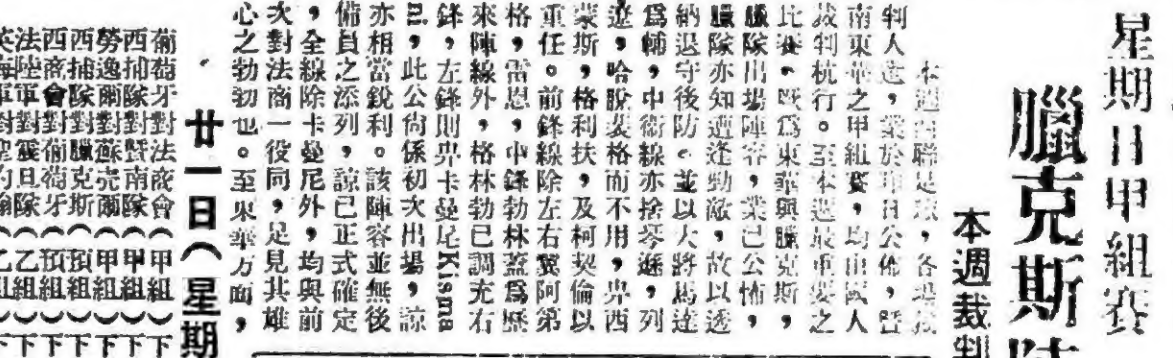 星期日甲組賽
臘克斯
本週裁判
本週西聯足球,各場裁
判人選,業於昨日公佈,暨
南東華之甲組賽,均由國人
裁判杭行。至本週最重要之
比賽,厥爲東華與臘克斯,
臘隊出場陣容,業已公佈,
臘隊亦知遭逢勁敵,故以透
納退守後防。並以大將馬達
爲輔,中衛線亦捨琴遜,列
遼,哈脫裴格而不用,畀西
蒙斯,格利扶,及柯契倫以
重任。前鋒線除左右翼阿第
格,雷恩,中鋒勃林蓋爲歷
來陣線外,格林勃已調充右
鋒,左鋒則畀卡曼尼Kisma
ni,此公尙係初次出場,諒
亦相當銳利。該陣容並無後
備員之添列,諒已正式確定
,全線除卡曼尼外,均與前
次對法商一役同,足見其雄
心之勃勃也。至東華方面,
廿一日(星期
葡萄牙對法商會(甲組)下
西捕隊對暨南隊(甲組)下
勞逸爾對蘇壳爾(甲組)下
西捕隊對臘克斯(預組)下
西商會對葡萄牙(預組)下
法陸軍對震旦隊(乙組)下
英海軍對聖約翰(乙組)下